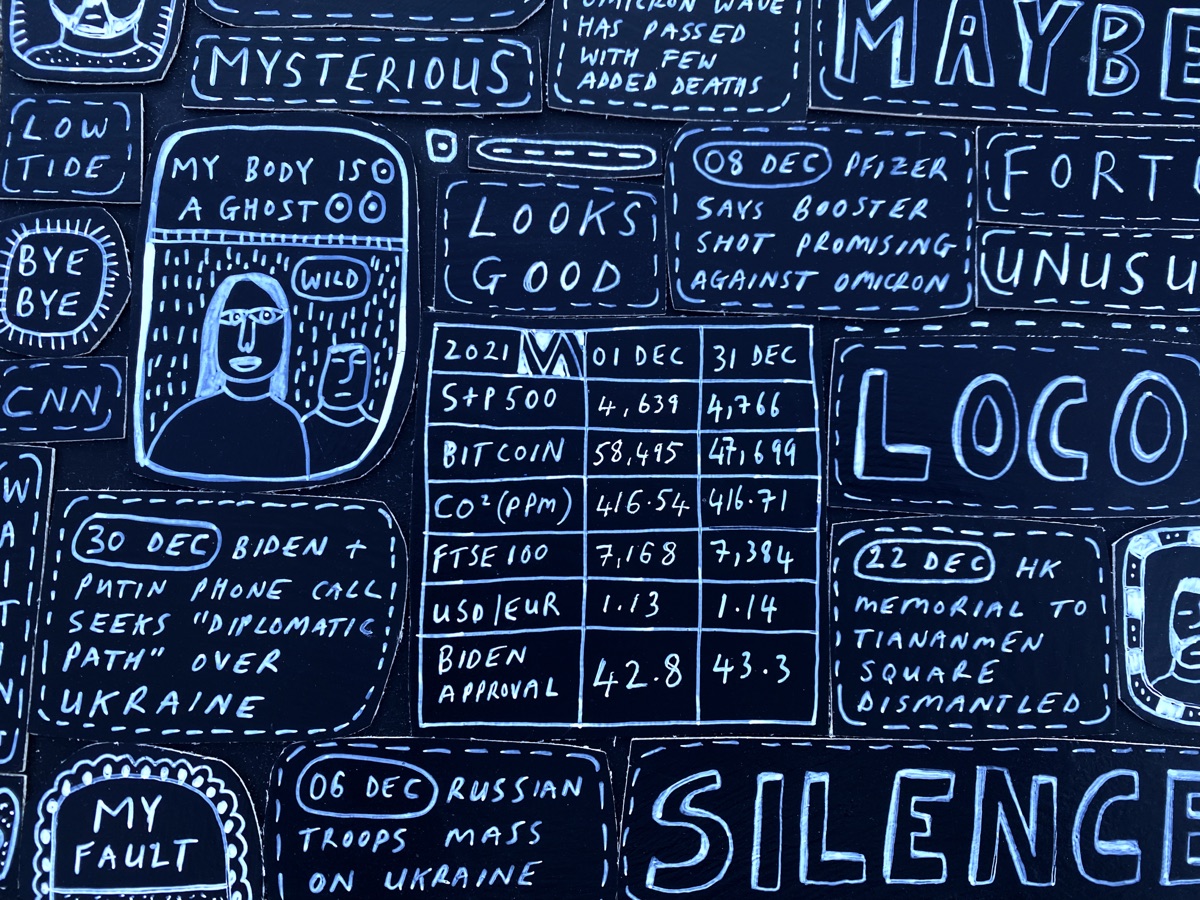 OMICRON WAVE
HAS PASSED
WITH FEW
ADDED DEATHS
MAYBE
MYSTERIOUS
LOW
TIDE
MY BODY IS
A GHOST
WILD
LOOKS
GOOD
08 DEC PFIZER
SAYS BOOSTER
SHOT PROMISING
AGAINST OMICRON
FORT
UNUSU
BYE
BYE
CNN
2021 01 DEC 31 DEC
S+P 500 4,639 4,766
BITCOIN 58,495 47,699
CO²(PPM) 416.54 416.71
FTSE 100 7,168 7,384
USD/EUR 1.13 1.14
BIDEN
APPROVAL 42.8 43.3
LOCO
30 DEC BIDEN +
PUTIN PHONE CALL
SEEKS "DIPLOMATIC
PATH" OVER
UKRAINE
22 DEC HK
MEMORIAL TO
TIANANMEN
SQUARE
DISMANTLED
MY
FAULT
06 DEC RUSSIAN
TROOPS MASS
ON UKRAINE
SILENCE